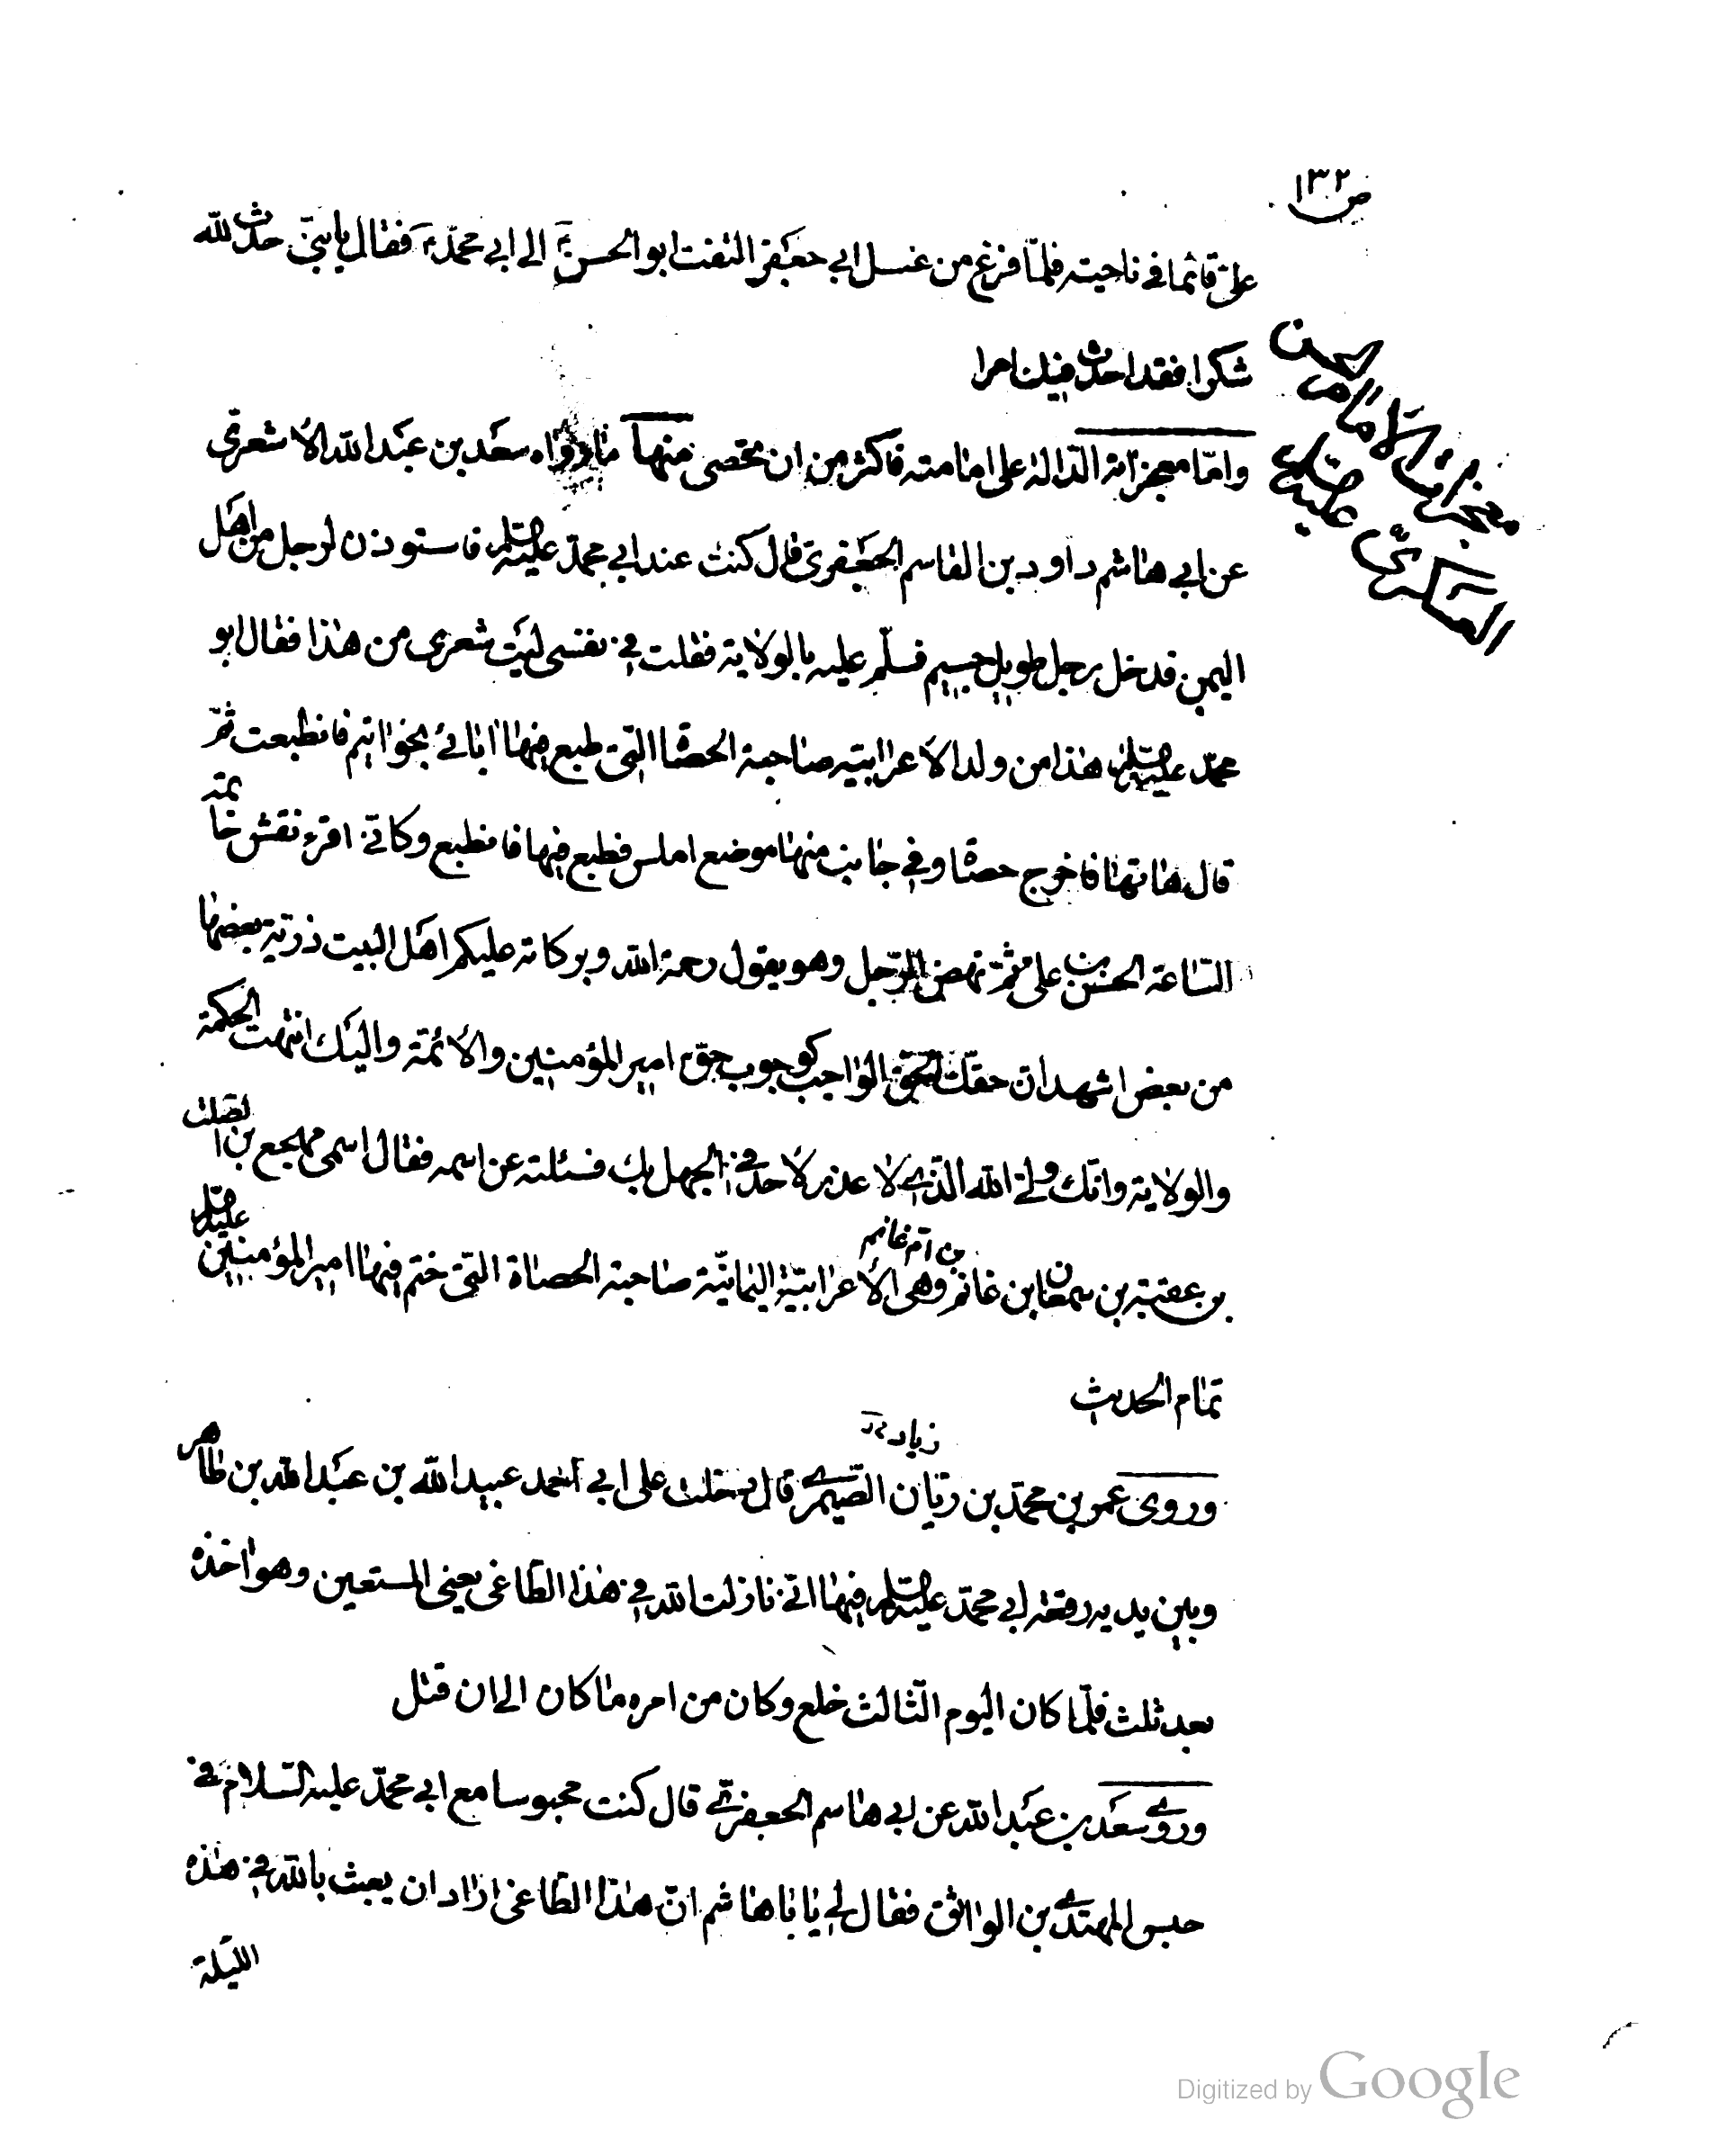 ص ١٣٢
علىّ قائما في ناحيته فلمّا فرغ من غسل ابي جعفر التفت ابو الحسن ع الى ابي محمّد ع فقال يا بنىّ حدث لله
شكرا فقد احدث فيك امرا
معجزات الامام الحسن
العسكرىّ عليه
وامّا معجزاته الدّالة على امامته فاكثر من ان تحصى منها ما رواه سعد بن عبد الله الاشعرى
عن ابي هاشم داود بن القاسم الجعفرى قال كنت عند ابي محمّد عليه السّلم فاستوذن لرجل من اهل
اليمن فدخل رجل طويل جسيم فسلّم عليه بالولاية فقلت في نفسى ليت شعرى من هذا فقال ابو
محمّد عليه السّلم هذا من ولد الاعرابيّة صاحبة الحصاة الّتى طبع فيها اٰبائى بخواتيم فانطبعت ثمّ
قال هاتها فاخرج حصاة وفي جانب منها موضع املس فطبع فيها فانطبع وكانّى اقرء نقش خاتمه
السّاعة الحسن بن على ثمّ نهض الرّجل وهو يقول رحمة الله وبركاته عليكم اهل البيت ذرّية بعضها
من بعض اشهد انّ حقّك الحقّ الواجب كوجوب حقّ امير المؤمنين والائمّة واليك انتهت الحكمة
والولاية وانّك ولىّ الله الّذى لا عذر لاحد في الجهل بك فسئلته عن اسمه فقال اسمى مهجع بن الصلت
بن عقبة بن سمعان ابن غانم بن امّ غانم وهى الاعرابيّة اليمانيّة صاحبة الحصاة الّتى ختم فيها امير المؤمنين عليه السّلم
تمام الحديث
وروى عمر بن محمّد بن ريّان زياد الصّيمرى قال دخلت على ابي احمد عبيد الله بن عبد الله بن طاهر
وبين يديه رقعة ابي محمّد عليه السّلم فيها انّى نازلت الله في هذا الطّاغى يعنى المستعين وهو اخذه
بعد ثلث فلمّا كان اليوم الثّالث خلع وكان من امره ما كان الى ان قتل
وروى سعد بن عبد الله عن ابي هاشم الجعفرىّ قال كنت محبوسا مع ابي محمّد عليه السّلام في
حبس المهتدى بن الواثق فقال لى يا با هاشم انّ هذا الطّاغى اراد ان يعبث بالله في هذه
اللّيلة
Digitized by Google